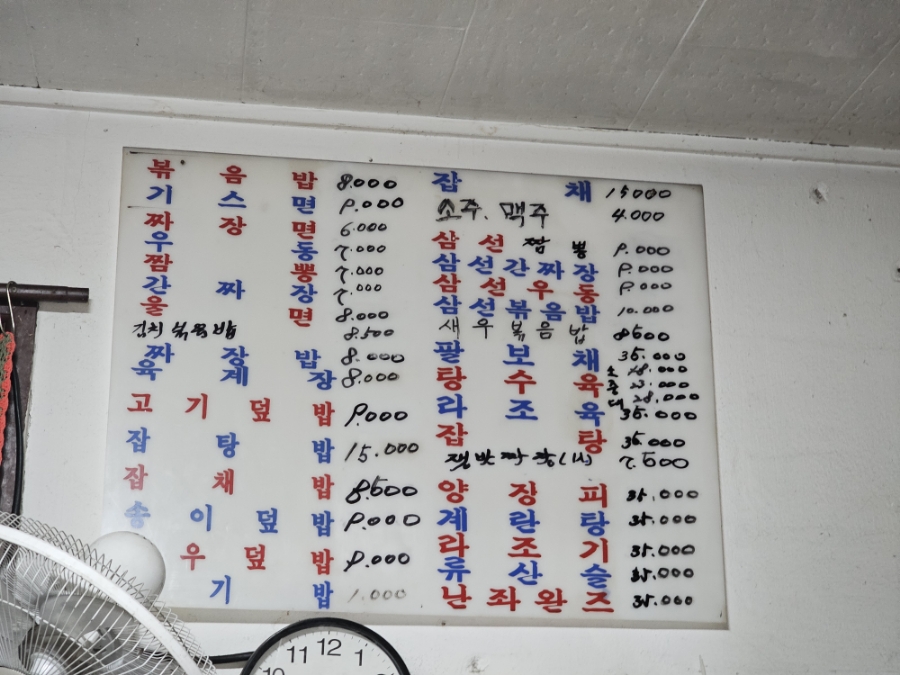 볶음밥 8.000
기스면 9.000
짜장면 6.000
우동 7.000
짬뽕 7.000
간짜장 7.000
울면 8.000
김치볶음밥 8.500
짜장밥 8.000
육계장 8.000
고기덮밥 9.000
잡탕밥 15.000
잡채밥 8.500
송이덮밥 9.000
우덮밥 9.000
기밥 1.000
잡채 15000
소주, 맥주 4.000
삼선짬뽕 9.000
삼선간짜장 9.000
삼선우동 9.000
삼선볶음밥 10.000
새우볶음밥 8500
팔보채 35.000
탕수육 소 18.000
중 23.000
대 28.000
라조육 35.000
잡탕 35.000
쟁반짜장(1人) 7.500
양장피 35.000
계란탕 35.000
라조기 35.000
류산슬 35.000
난좌완즈 35.000
11 12 1
10